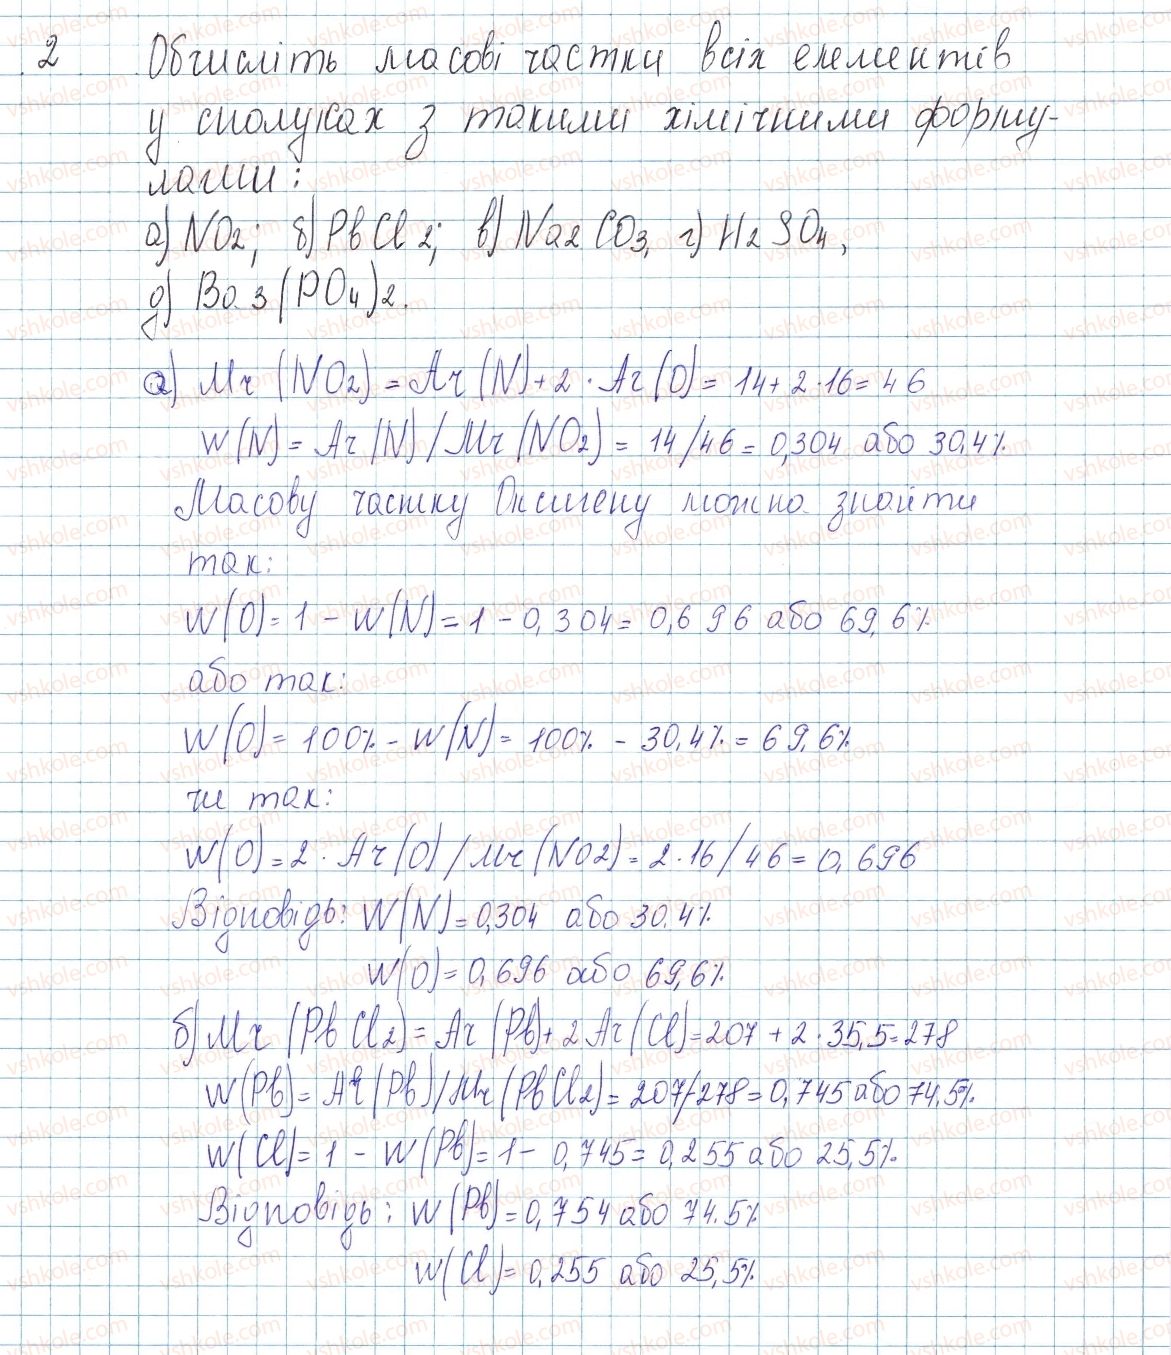 2 Обчисліть масові частки всіх елементів
у сполуках з такими хімічними форму-
лами:
а) NO2; б) PbCl2; в) Na2CO3, г) H2SO4,
д) Ba3(PO4)2.
а) Mr(NO2) = Ar(N) + 2 · Ar(O) = 14 + 2 · 16 = 46
W(N) = Ar(N) / Mr(NO2) = 14/46 = 0,304 або 30,4%
Масову частку Оксигену можна знайти
так:
W(O) = 1 - W(N) = 1 - 0,304 = 0,696 або 69,6%
або так:
W(O) = 100% - W(N) = 100% - 30,4% = 69,6%
чи так:
W(O) = 2 · Ar(O) / Mr(NO2) = 2 · 16/46 = 0,696
Відповідь: W(N) = 0,304 або 30.4%
W(O) = 0,696 або 69,6%
б) Mr(PbCl2) = Ar(Pb) + 2Ar(Cl) = 207 + 2 · 35,5 = 278
W(Pb) = Ar(Pb) / Mr(PbCl2) = 207/278 = 0,745 або 74,5%
W(Cl) = 1 - W(Pb) = 1 - 0,745 = 0,255 або 25,5%
Відповідь: W(Pb) = 0,754 або 74.5%
W(Cl) = 0,255 або 25,5%